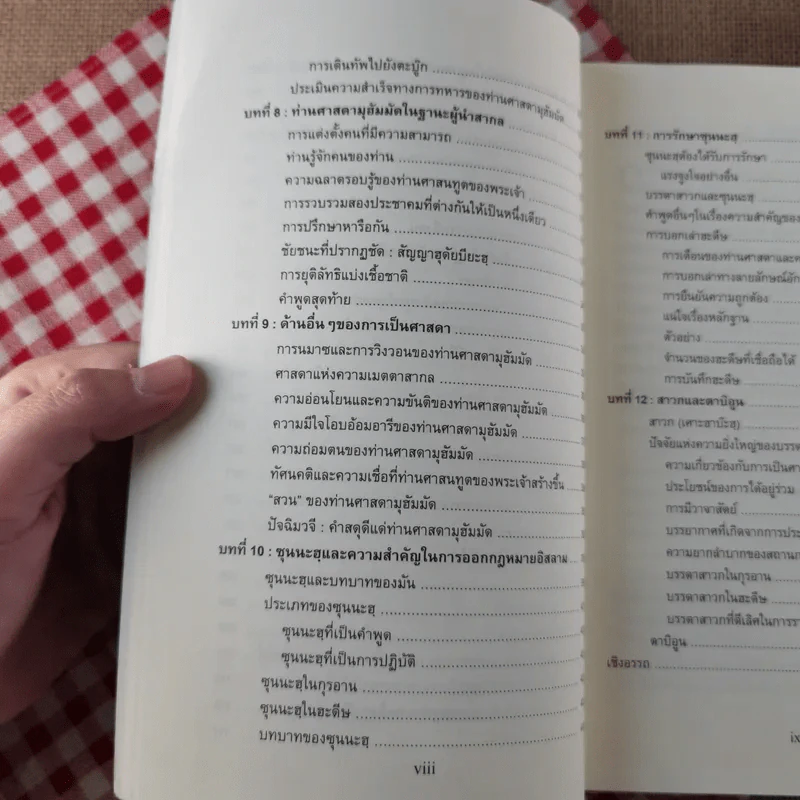 การเดินทัพไปยังตะบู๊ก
ประเมินความสำเร็จทางการทหารของท่านศาสดามุฮัมมัด
บทที่ 8 : ท่านศาสดามุฮัมมัดในฐานะผู้นำสากล
การแต่งตั้งคนที่มีความสามารถ
ท่านรู้จักคนของท่าน
ความฉลาดรอบรู้ของท่านศาสนทูตของพระเจ้า
การรวบรวมสองประชาคมที่ต่างกันให้เป็นหนึ่งเดียว
การปรึกษาหารือกัน
ชัยชนะที่ปรากฏชัด : สัญญาฮุดัยบียะฮฺ
การยุติลัทธิแบ่งเชื้อชาติ
คำพูดสุดท้าย
บทที่ 9 : ด้านอื่นๆของการเป็นศาสดา
การนมาซและการวิงวอนของท่านศาสดามุฮัมมัด
ศาสดาแห่งความเมตตาสากล
ความอ่อนโยนและความขันติของท่านศาสดามุฮัมมัด
ความมีใจโอบอ้อมอารีของท่านศาสดามุฮัมมัด
ความถ่อมตนของท่านศาสดามุฮัมมัด
ทัศนคติและความเชื่อที่ท่านศาสนทูตของพระเจ้าสร้างขึ้น
“สวน” ของท่านศาสดามุฮัมมัด
ปัจฉิมวจี : คำสดุดีแด่ท่านศาสดามุฮัมมัด
บทที่ 10 : ซุนนะฮฺและความสำคัญในการออกกฎหมายอิสลาม
ซุนนะฮฺและบทบาทของมัน
ประเภทของซุนนะฮฺ
ซุนนะฮฺที่เป็นคำพูด
ซุนนะฮฺที่เป็นการปฏิบัติ
ซุนนะฮฺในกุรอาน
ซุนนะฮฺในฮะดีษ
บทบาทของซุนนะฮฺ
viii
บทที่ 11 : การรักษาซุนนะฮฺ
ซุนนะฮฺต้องได้รับการรักษา
แรงจูงใจอย่างอื่น
บรรดาสาวกและซุนนะฮฺ
คำพูดอื่นๆในเรื่องความสำคัญของ
การบอกเล่าฮะดีษ
การเตือนของท่านศาสดาและค
การบอกเล่าทางลายลักษณ์อัก
การยืนยันความถูกต้อง
แน่ใจเรื่องหลักฐาน
ตัวอย่าง
จำนวนของฮะดีษที่เชื่อถือได้
การบันทึกฮะดีษ
บทที่ 12 : สาวกและตาบิอูน
สาวก (เศาะฮาบ๊ะฮฺ)
ปัจจัยแห่งความยิ่งใหญ่ของบรรด
ความเกี่ยวข้องกับการเป็นศา
ประโยชน์ของการได้อยู่ร่วม
การมีวาจาสัตย์
บรรยากาศที่เกิดจากการประ
ความยากลำบากของสถานก
บรรดาสาวกในกุรอาน
บรรดาสาวกในฮะดีษ
บรรดาสาวกที่ดีเลิศในการรา
ตาบิอูน
เชิงอรรถ
ix